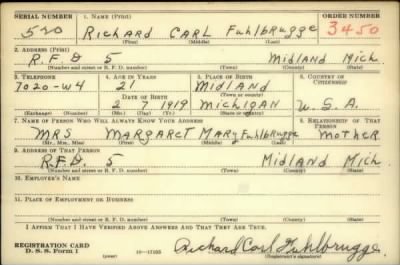 SERIAL NUMBER 1. NAME (Print) ORDER NUMBER
520 RICHARD CARL Fuhlbrugge 3450
(First) (Middle) (Last)
2. ADDRESS (Print)
R.F.D. 5 MIDLAND MICH
(Number and street or R. F. D. number) (Town) (County) (State)
3. TELEPHONE 4. AGE IN YEARS 5. PLACE OF BIRTH 6. COUNTRY OF CITIZENSHIP
7020-W4 21 MIDLAND
DATE OF BIRTH (Town or county)
2 7 1919 MICHIGAN U.S.A.
(Exchange) (Number) (Mo.) (Day) (Yr.) (State or country)
7. NAME OF PERSON WHO WILL ALWAYS KNOW YOUR ADDRESS 8. RELATIONSHIP OF THAT PERSON
MRS MARGARET MARY Fuhlbrugge MOTHER
(Mr., Mrs., Miss) (First) (Middle) (Last)
9. ADDRESS OF THAT PERSON
R.F.D. 5 MIDLAND MICH
(Number and street or R. F. D. number) (Town) (County) (State)
10. EMPLOYER'S NAME
11. PLACE OF EMPLOYMENT OR BUSINESS
(Number and street or R. F. D. number) (Town) (County) (State)
I AFFIRM THAT I HAVE VERIFIED ABOVE ANSWERS AND THAT THEY ARE TRUE.
REGISTRATION CARD
D. S. S. Form 1 16-17105 Richard Carl Fuhlbrugge
(Registrant's signature)